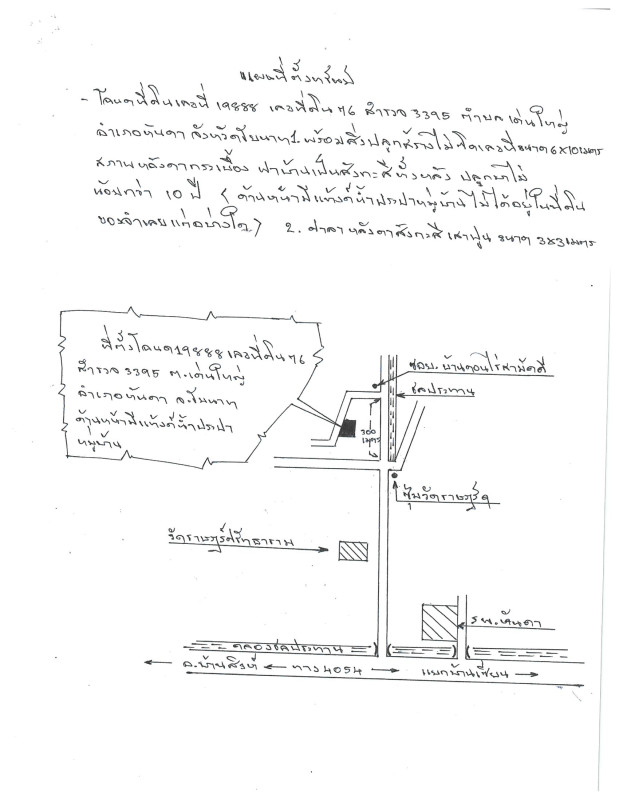 แผนที่ตั้งทรัพย์
- โฉนดที่ดินเลขที่ 19888 เลขที่ดิน 76 สำรวจ 3395 ตำบล เด่นใหญ่
อำเภอหันคา จังหวัดชัยนาท 1. พร้อมสิ่งปลูกสร้างไม่ติดเลขที่ ขนาด 6x10 เมตร
หลังคากระเบื้อง ฝาบ้านเป็นสังกะสีทั้งหลัง ปลูกมาไม่
น้อยกว่า 10 ปี ( ด้านหน้ามีแท้งค์น้ำประปาหมู่บ้าน ไม่ได้อยู่ในที่ดิน
ของจำเลยแต่อย่างใด ) 2. ศาลา หลังคาสังกะสี เสาปูน ขนาด 3x3 เมตร
ที่ตั้งโฉนด 19888 เลขที่ดิน 76
สำรวจ 3395 ต.เด่นใหญ่
อำเภอหันคา จ.ชัยนาท
ด้านหน้ามีแท้งค์น้ำประปา
หมู่บ้าน
ซอย.บ้านดอนไร่สามัคคี
ชลประทาน
300
เมตร
ซุ้มวัดราษฎร์ฯ
วัดราษฎร์ศรัทธาราม
รพ.หันคา
คลองชลประทาน
ต.บ้านสิงห์ ทาง 4054 แยกบ้านเชี่ยน